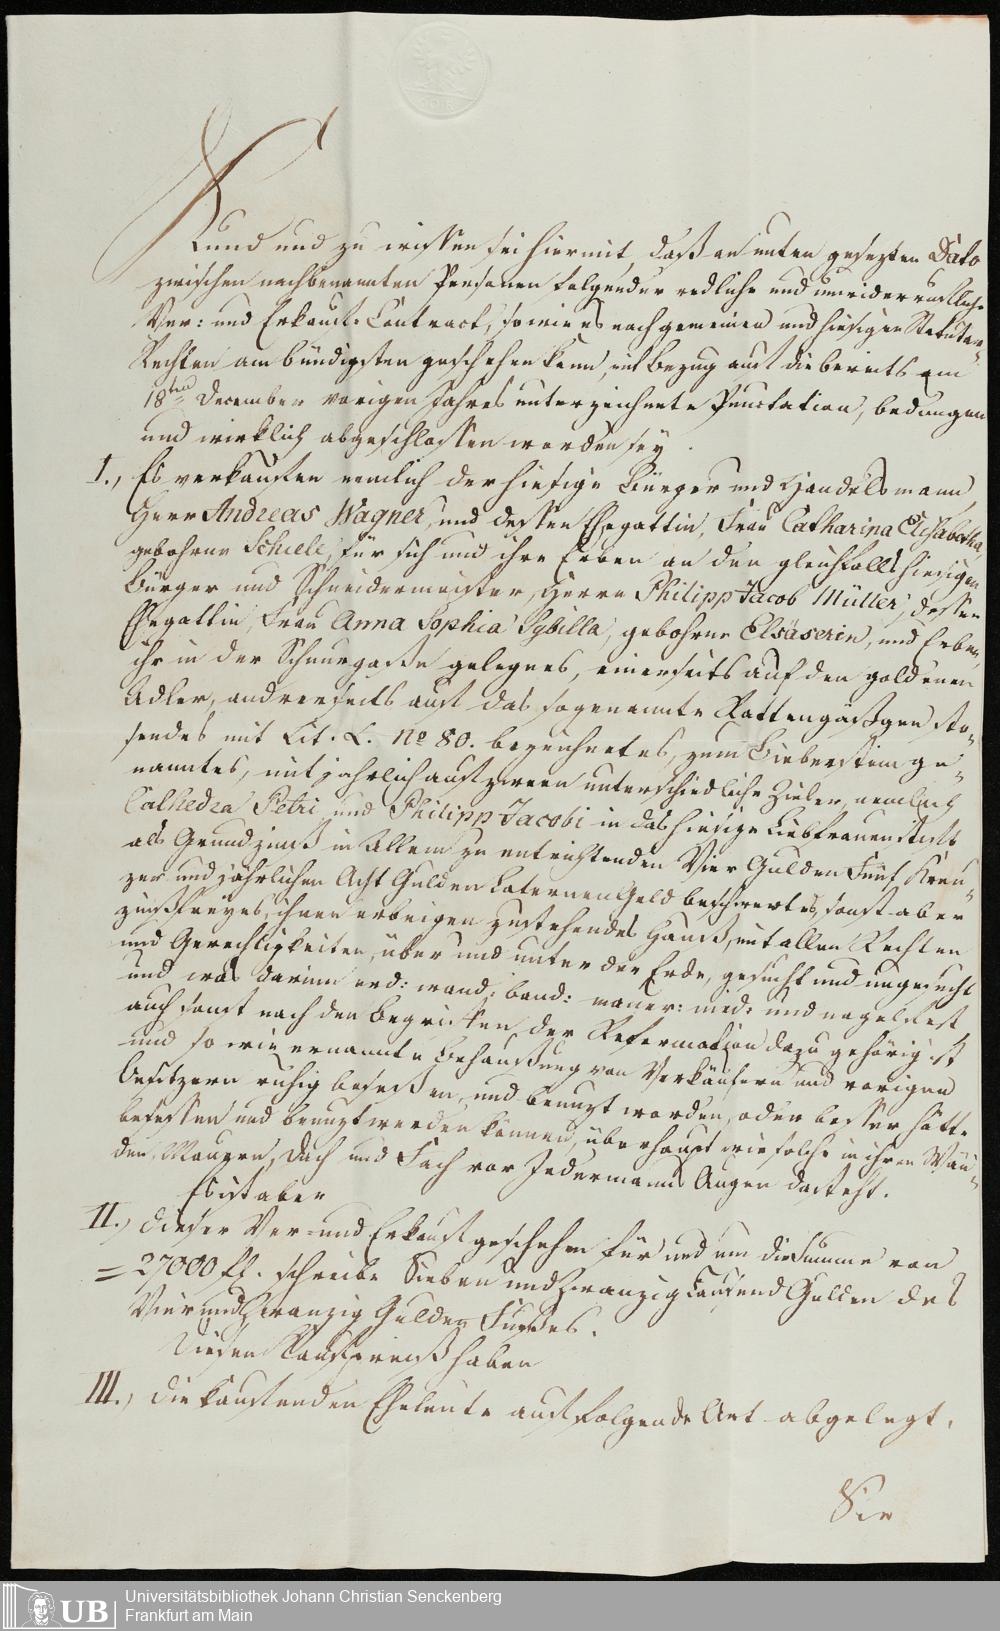 Kund und zu wissen sei hiermit, daß an unten gesezten Dato
zwischen nachbenannten Personen folgender redliche und unwiderrufliche
Ver: und Erkauf: Contract, so wie es nach gemeinen und hiesigen Statuten-
Rechten am bündigsten geschehen kann, mit Bezug auf die bereits am
18ten December vorigen Jahres unterzeichnete Punctation, bedungen
und wirklich abgeschlossen worden sey.
I., Es verkaufen nemlich der hiesige Bürger und Handelsmann,
Herr Andreas Wagner, und dessen Ehegattin, Frau Catharina Elisabetha,
gebohrne Schiele, für sich und ihre Erben an den gleichfalls hiesigen
Bürger und Schneidermeister, Herrn Philipp Jacob Müller, dessen
Ehegattin, Frau Anna Sophia Sybilla, gebohrne Elsäserin, und Erben,
ihr in der Schnurgaße gelegnes, einerseits auf den goldenen
Adler, andrerseits auf das sogenannte Rattengäßgen sto-
sendes mit Lit. L. No 80. bezeichnetes, zum Bieberstein ge-
nanntes, mit jährlich auf zween unterschiedliche Zieler, nemlich
Cathedra Petri und Philipp Jacobi in das hiesige Liebfrauenstift
als Grundzinß in Allem zu entrichtenden Vier Gulden Fünf Kreu-
zer und jährlichen Acht Gulden Laternen Geld beschwertes, sonst aber
zinßfreyes, ihnen erbeigen zustehendes Hauß, mit allen Rechten
und Gerechtigkeiten, über und unter der Erde, gesucht und ungesucht
und was darinn erd: wand: band: mauer: nied: und nagelfest
auch sonst nach den Begriffen der Reformation dazu gehörig ist
und so wie ernannte Behaußung von Verkäufern und vorigen
Besitzern ruhig beseßen, und benuzt worden, oder besser hätte
besessen und benuzt werden können, überhaupt wie solche in ihren Wän-
den, Mauern, Dach und Fach vor Jedermanns Augen dasteht.
Es ist aber
II., dieser Ver- und Erkauf geschehen für und um die Summe von
= 27000 fl. schreibe Sieben und Zwanzig Tausend Gulden des
Vier und Zwanzig Gulden Fußes.
Diesen Kaufpreiß haben
III., die kaufenden Eheleute auf folgende Art abgelegt.
Sie
UB
Universitätsbibliothek Johann Christian Senckenberg
Frankfurt am Main